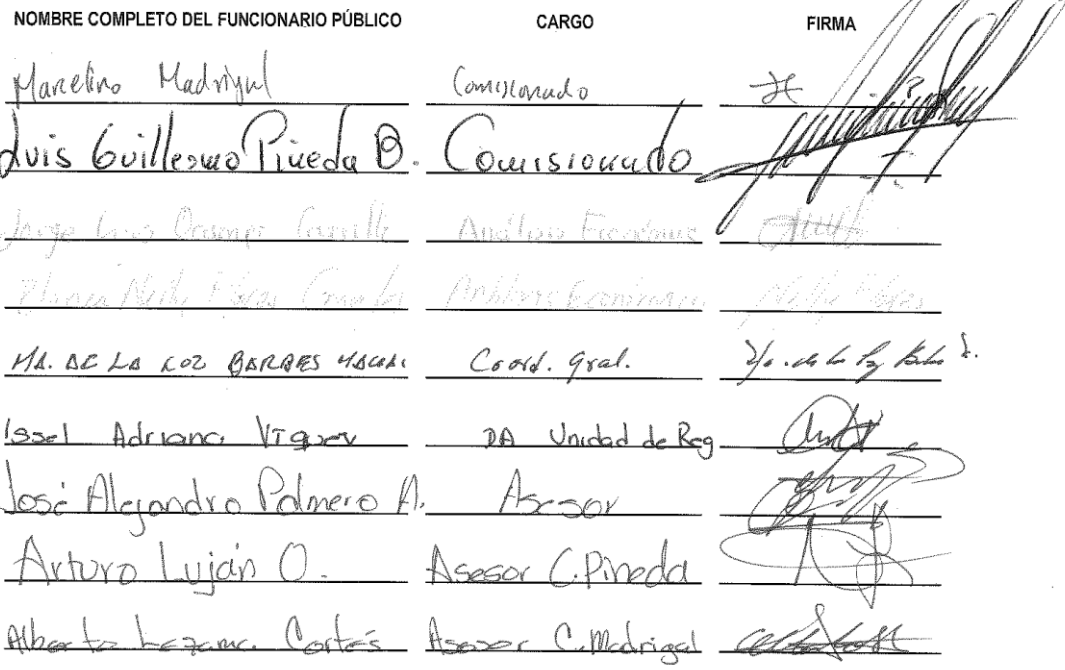 NOMBRE COMPLETO DEL FUNCIONARIO PÚBLICO CARGO FIRMA
Marcelino Madrigal Comisionado
Luis Guillermo Pineda B. Comisionado
Jorge Luis Carrillo Análisis Económico
Nelly Flores Análisis Económico Nelly Flores
MA. DE LA LUZ Coord. Gral.
Issel Adriana DA Unidad de Reg
José Alejandro Palmero A. Asesor
Arturo Luján O. Asesor C. Pineda
Alberto Lezama Cortés Asesor C. Madrigal